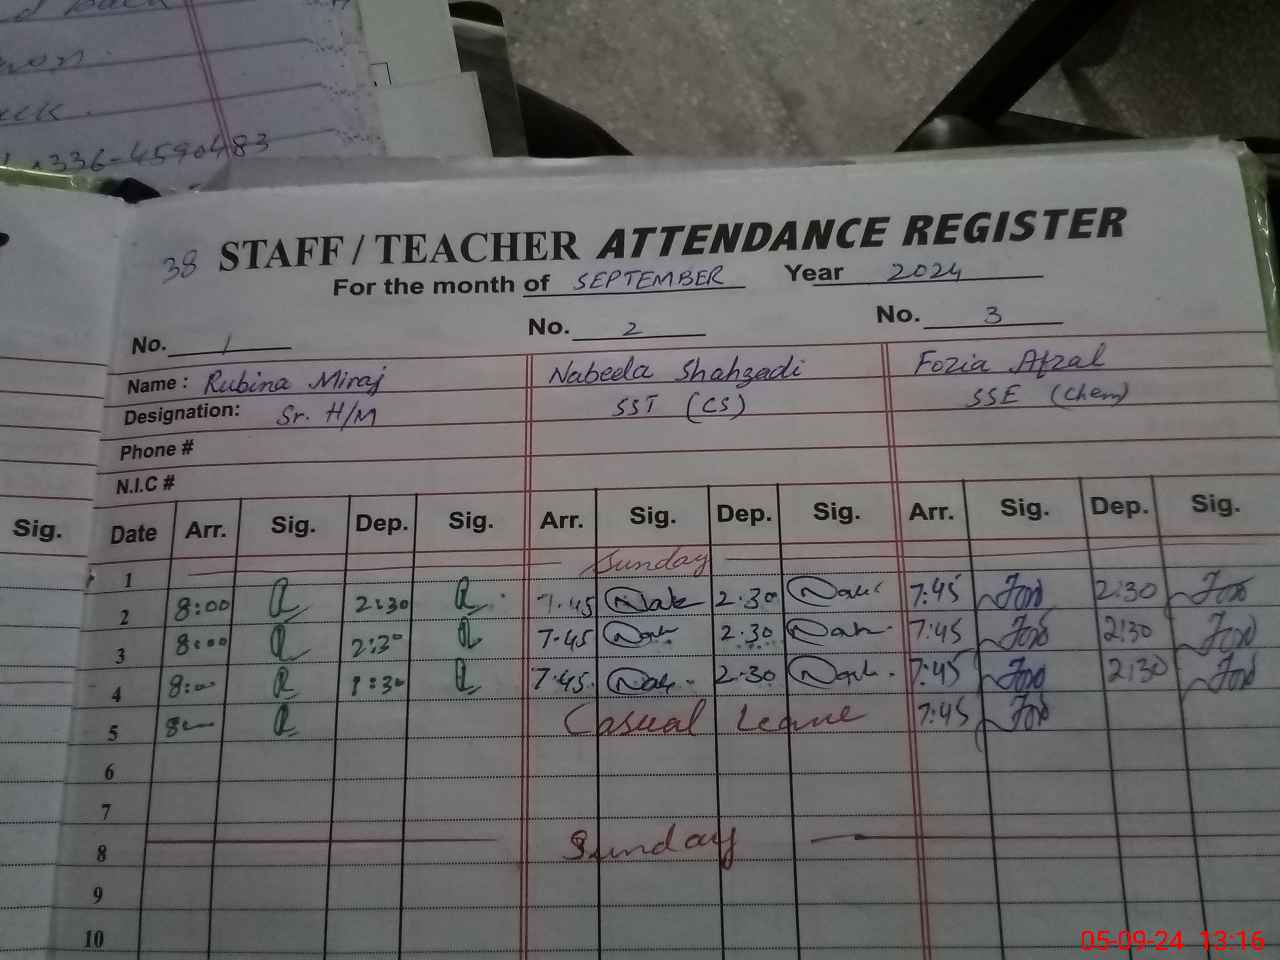 336-4590483
38 STAFF / TEACHER ATTENDANCE REGISTER
For the month of SEPTEMBER Year 2024
No. 1 No. 2 No. 3
Name : Rubina Miraj Nabeela Shahzadi Fozia Afzal
Designation: Sr. H/M SST (CS) SSE (Chem)
Phone #
N.I.C #
Sig. Date Arr. Sig. Dep. Sig. Arr. Sig. Dep. Sig. Arr. Sig. Dep. Sig.
1 Sunday
2 8:00 2:30 7:45 2:30 7:45 2:30
3 8:00 2:30 7-45 2:30 7:45 2:30
4 8:00 1:30 7.45. 2-30 7:45 2:30
5 8 Casual Leave 7:45
6
7
8 Sunday
9
10
05-09-24 13:16